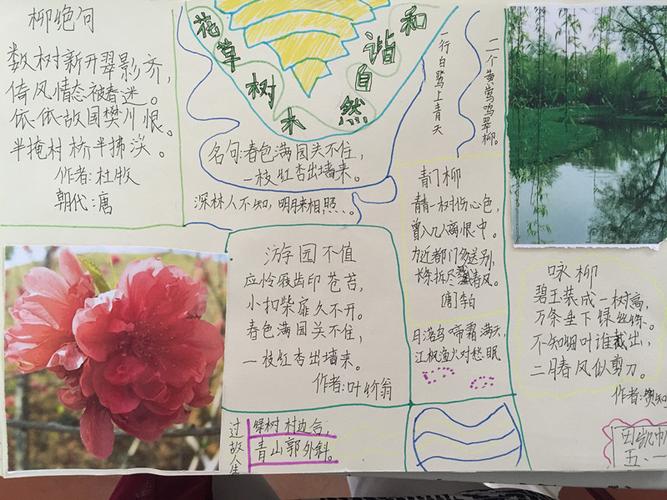 柳绝句
数树新开翠影齐，
倚风情态被春迷。
依依故国樊川恨，
半掩村桥半拂溪。
作者：杜牧
朝代：唐
花草树木
和谐自然
名句：春色满园关不住，
一枝红杏出墙来。
深林人不知，明月来相照。
一行白鹭上青天
二个黄莺鸣翠柳。
游园不值
应怜屐齿印苍苔，
小扣柴扉久不开。
春色满园关不住，
一枝红杏出墙来。
作者：叶竹翁
青门柳
青青一树伤心色，
曾入几人离恨中。
为近都门多送别，
长条折尽春风。
日落乌啼霜满天，
江枫渔火对愁眠
咏柳
碧玉装成一树高，
万条垂下绿丝绦。
不知细叶谁裁出，
二月春风似剪刀。
作者：贺知
过故人
绿树村边合，
青山郭外斜。
五、一